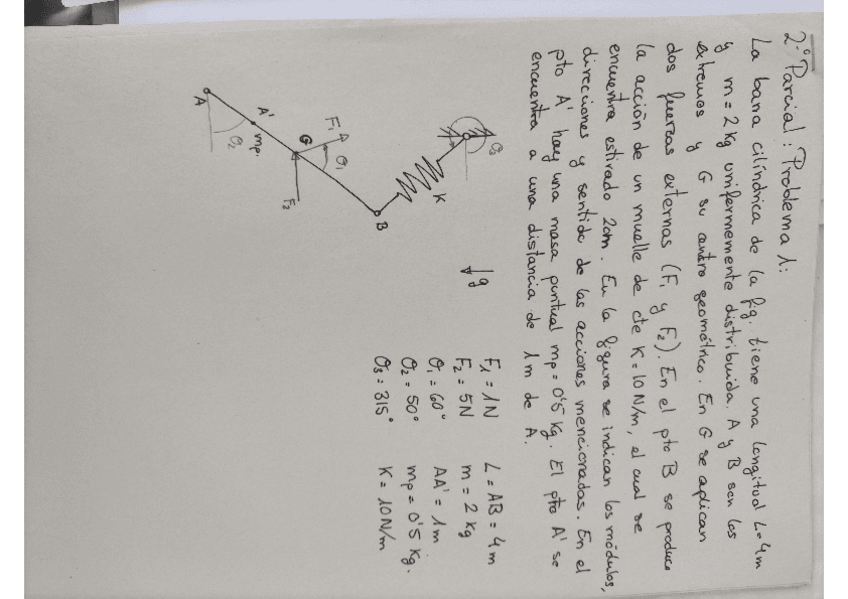 2º Parcial: Problema 1:
La barra cilíndrica de la fig. tiene una longitud L=4m
y m = 2 kg uniformemente distribuida. A y B son los
extremos y G su centro geométrico. En G se aplican
dos fuerzas externas (F₁ y F₂). En el pto B se produce
la acción de un muelle de cte K=10N/m, el cual se
encuentra estirado 2cm. En la figura se indican los módulos,
direcciones y sentido de las acciones mencionadas. En el
pto A' hay una masa puntual mp=0'5 kg. El pto A' se
encuentra a una distancia de 1m de A.
θ₃
K
B
F₁
θ₁
G
F₂
A'
mp.
θ₂
A
g
F₁ = 1N L = AB = 4m
F₂ = 5N m = 2 kg
θ₁ = 60° AA' = 1m
θ₂ = 50° mp = 0'5 kg.
θ₃ = 315° K = 10N/m